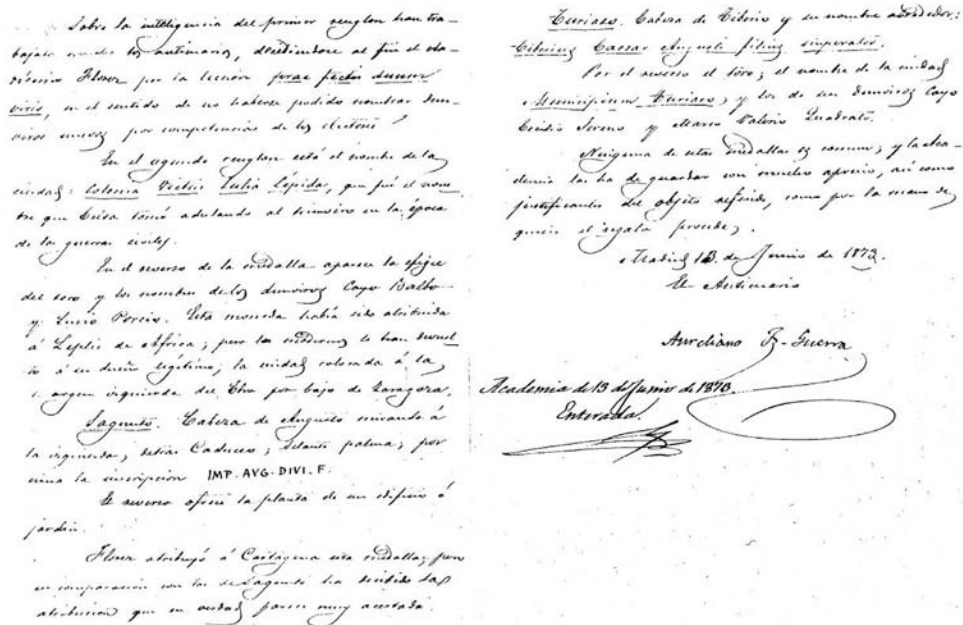 Sobre la inteligencia del primer renglon han tra-
bajado mucho los anticuarios, decidiéndose al fin el cla-
rísimo Florez por la leccion forae factis duum
viris, en el sentido de no haberse podido nombrar duum-
viros nuevos por competencias de los electores
En el segundo renglon está el nombre de la
ciudad: Colonia Victrix Iulia Lépida, que fué el nom-
bre que Celsa tomó adulando al triunviro en la época
de las guerras civiles.
En el reverso de la medalla aparece la efigie
del toro y los nombres de los duumviros Cayo Balbo
y Lucio Porcio. Esta moneda habia sido atribuida
á Leptis de Africa; pero los modernos la han devuel-
to á su dueño legítimo, la ciudad colocada á la
margen izquierda del Ebro por bajo de Zaragoza.
Sagunto. Cabeza de Augusto mirando á
la izquierda; detras Caduceo; delante palma; por
cima la inscripcion IMP. AVG. DIVI. F.
El reverso ofrece la planta de un edificio ó
jardin.
Florez atribuyó á Cartagena esta medalla; pero
su comparacion con las de Sagunto ha decidido la
atribucion que en verdad parece muy acertada.
Turiaso. Cabeza de Tiberio y su nombre alrededor:
Tiberius Caesar Augusti filius imperator.
Por el reverso el toro; el nombre de la ciudad
Municipium Turiaso; y los de sus duumviros Cayo
Cecilio Sereno y Marco Valerio Quadrato.
Ninguna de estas medallas es comun; y la Aca-
demia las ha de guardar con mucho aprecio, así como
justificantes del objeto referido, como por la mano de
quien el regalo procede.
Madrid 13 de Junio de 1873.
El Anticuario
Aureliano F-Guerra
Academia de 13 de Junio de 1873.
Enterada.